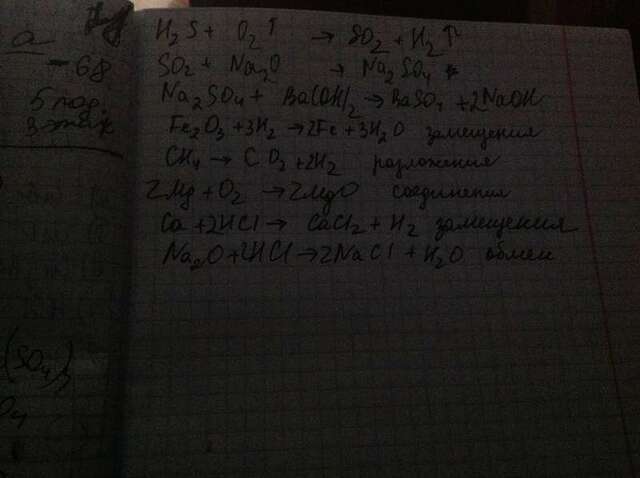 a
- 68
5 пор.
(SO4)3
O4
H2S + O2↑ → SO2 + H2↑
SO2 + Na2O → Na2SO4
Na2SO4 + Ba(OH)2 → BaSO4 + 2NaOH
Fe2O3 + 3H2 → 2Fe + 3H2O замещения
CH4 → CO2 + 2H2 разложения
2Mg + O2 → 2MgO соединения
Ca + 2HCl → CaCl2 + H2 замещения
Na2O + 2HCl → 2NaCl + H2O обмен